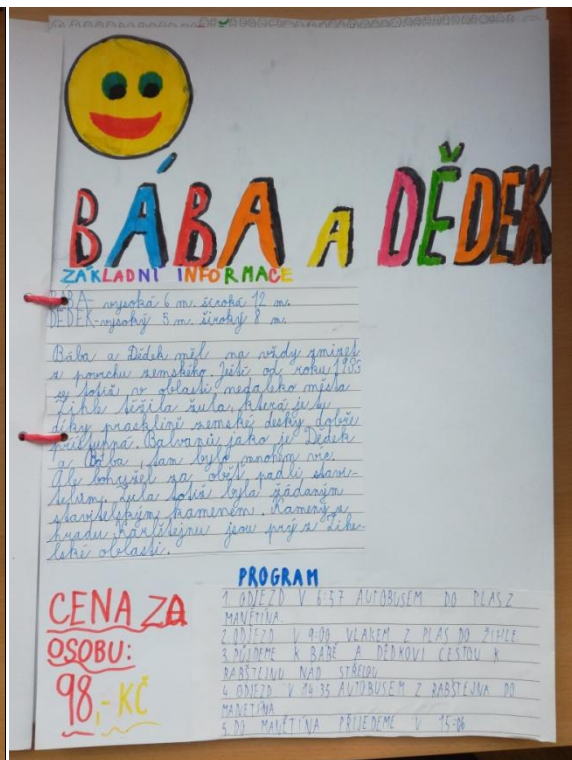 BÁBA A DĚDEK
ZÁKLADNÍ INFORMACE
BÁBA - vysoká 6 m. široká 12 m.
DĚDEK - vysoký 5 m. široký 8 m.
Bába a Dědek měl na vždy zmizet
z povrchu zemského. Ještě od roku 1933
se totiž v oblasti nedaleko města
Žihle těžila žula, která je tu
díky prasklině zemské desky dobře
přístupná. Balvanů jako je Dědek
a Bába, tam bylo mnohem víc.
Ale bohužel za oběť padli stavi-
telům. Žula totiž byla žádaným
stavitelským kamenem. Kameny z
hradu Karlštejnu jsou prý z Žihel-
ské oblasti.
CENA ZA
OSOBU:
98,- KČ
PROGRAM
1. ODJEZD V 6:37 AUTOBUSEM DO PLAS Z
MANĚTÍNA.
2. ODJEZD V 9:00 VLAKEM Z PLAS DO ŽIHLE
3. PŮJDEME K BÁBĚ A DĚDKOVI CESTOU K
RABŠTEJNU NAD STŘELOU
4. ODJEZD V 14:35 AUTOBUSEM Z RABŠTEJNA DO
MANĚTÍNA
5. DO MANĚTÍNA PŘIJEDEME V 15:06